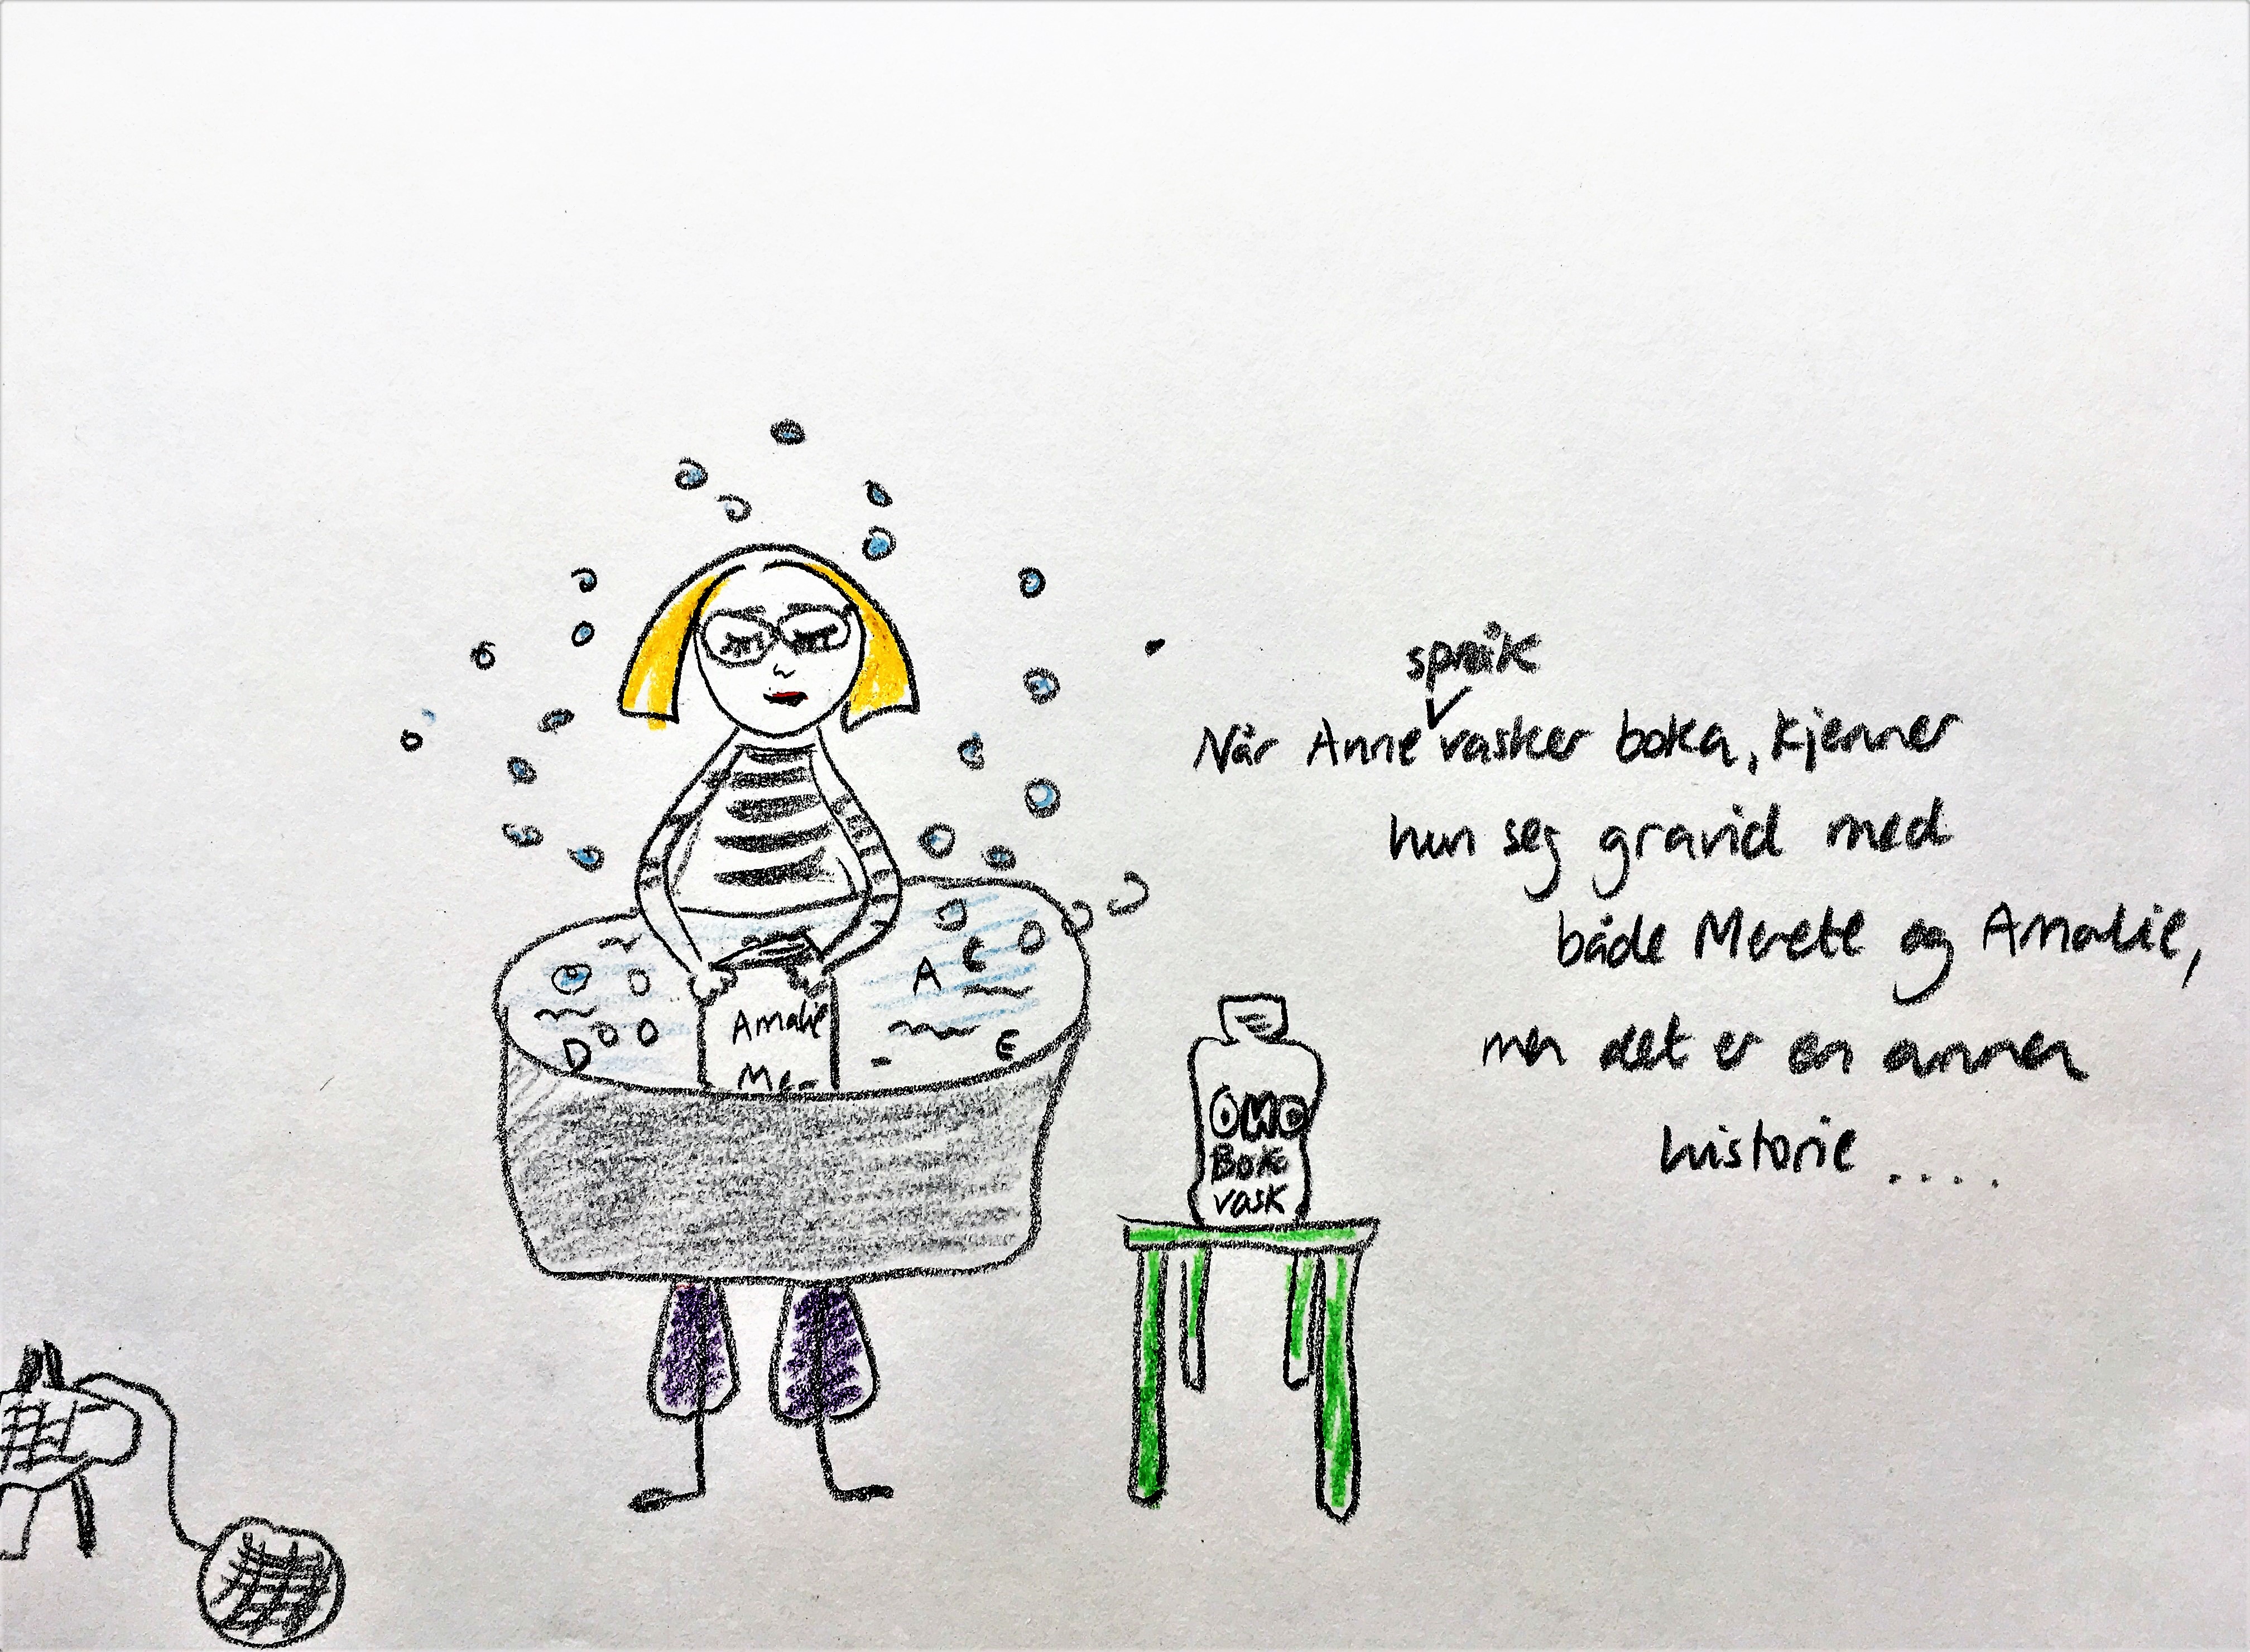 språk
Når Anne vasker boka, kjenner
hun seg gravid med
både Merete og Amalie,
men det er en annen
historie ....
A E
D E
Amalie
Me-
OMO
Bok
vask